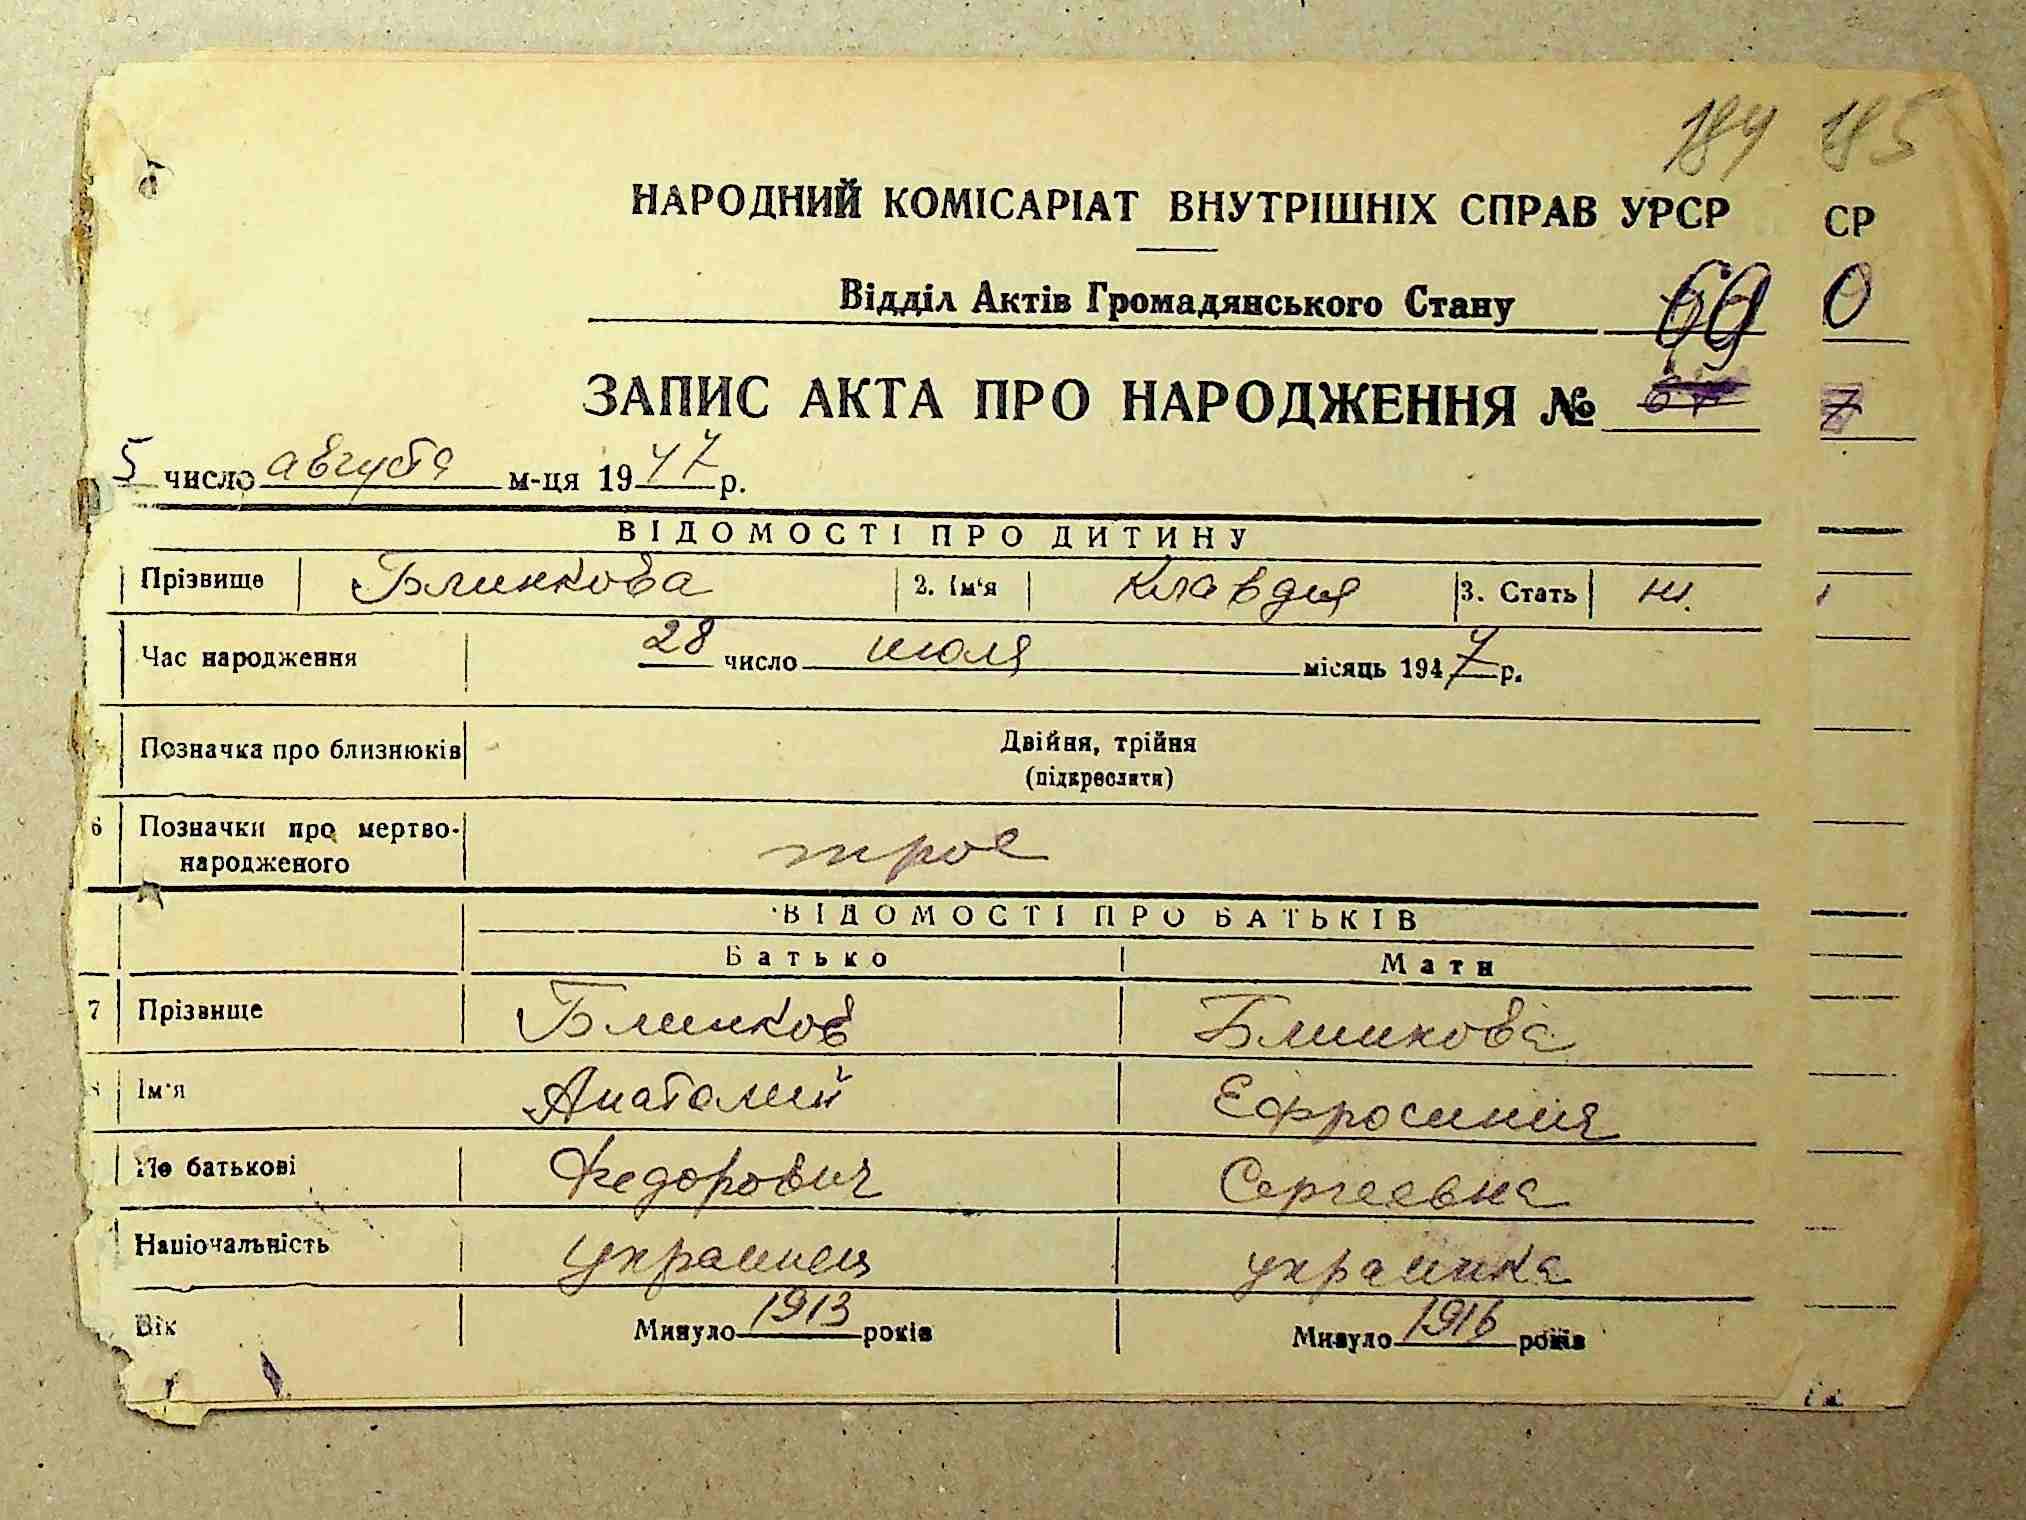 184 185
НАРОДНИЙ КОМІСАРІАТ ВНУТРІШНІХ СПРАВ УРСР СР
Відділ Актів Громадянського Стану 69 0
ЗАПИС АКТА ПРО НАРОДЖЕННЯ № 7
5 число августа м-ця 1947 р.
ВІДОМОСТІ ПРО ДИТИНУ
Прізвище Блинкова 2. Ім'я Клавдия 3. Стать ж.
Час народження 28 число июля місяць 1947 р.
Позначка про близнюків Двійня, трійня
(підкреслити)
6 Позначки про мертво-
народженого трое
ВІДОМОСТІ ПРО БАТЬКІВ
Батько Мати
7 Прізвище Блинков Блинкова
Ім'я Анатолий Ефросиния
По батькові Федорович Сергеевна
Національність украинец украинка
Вік Минуло 1913 років Минуло 1916 років